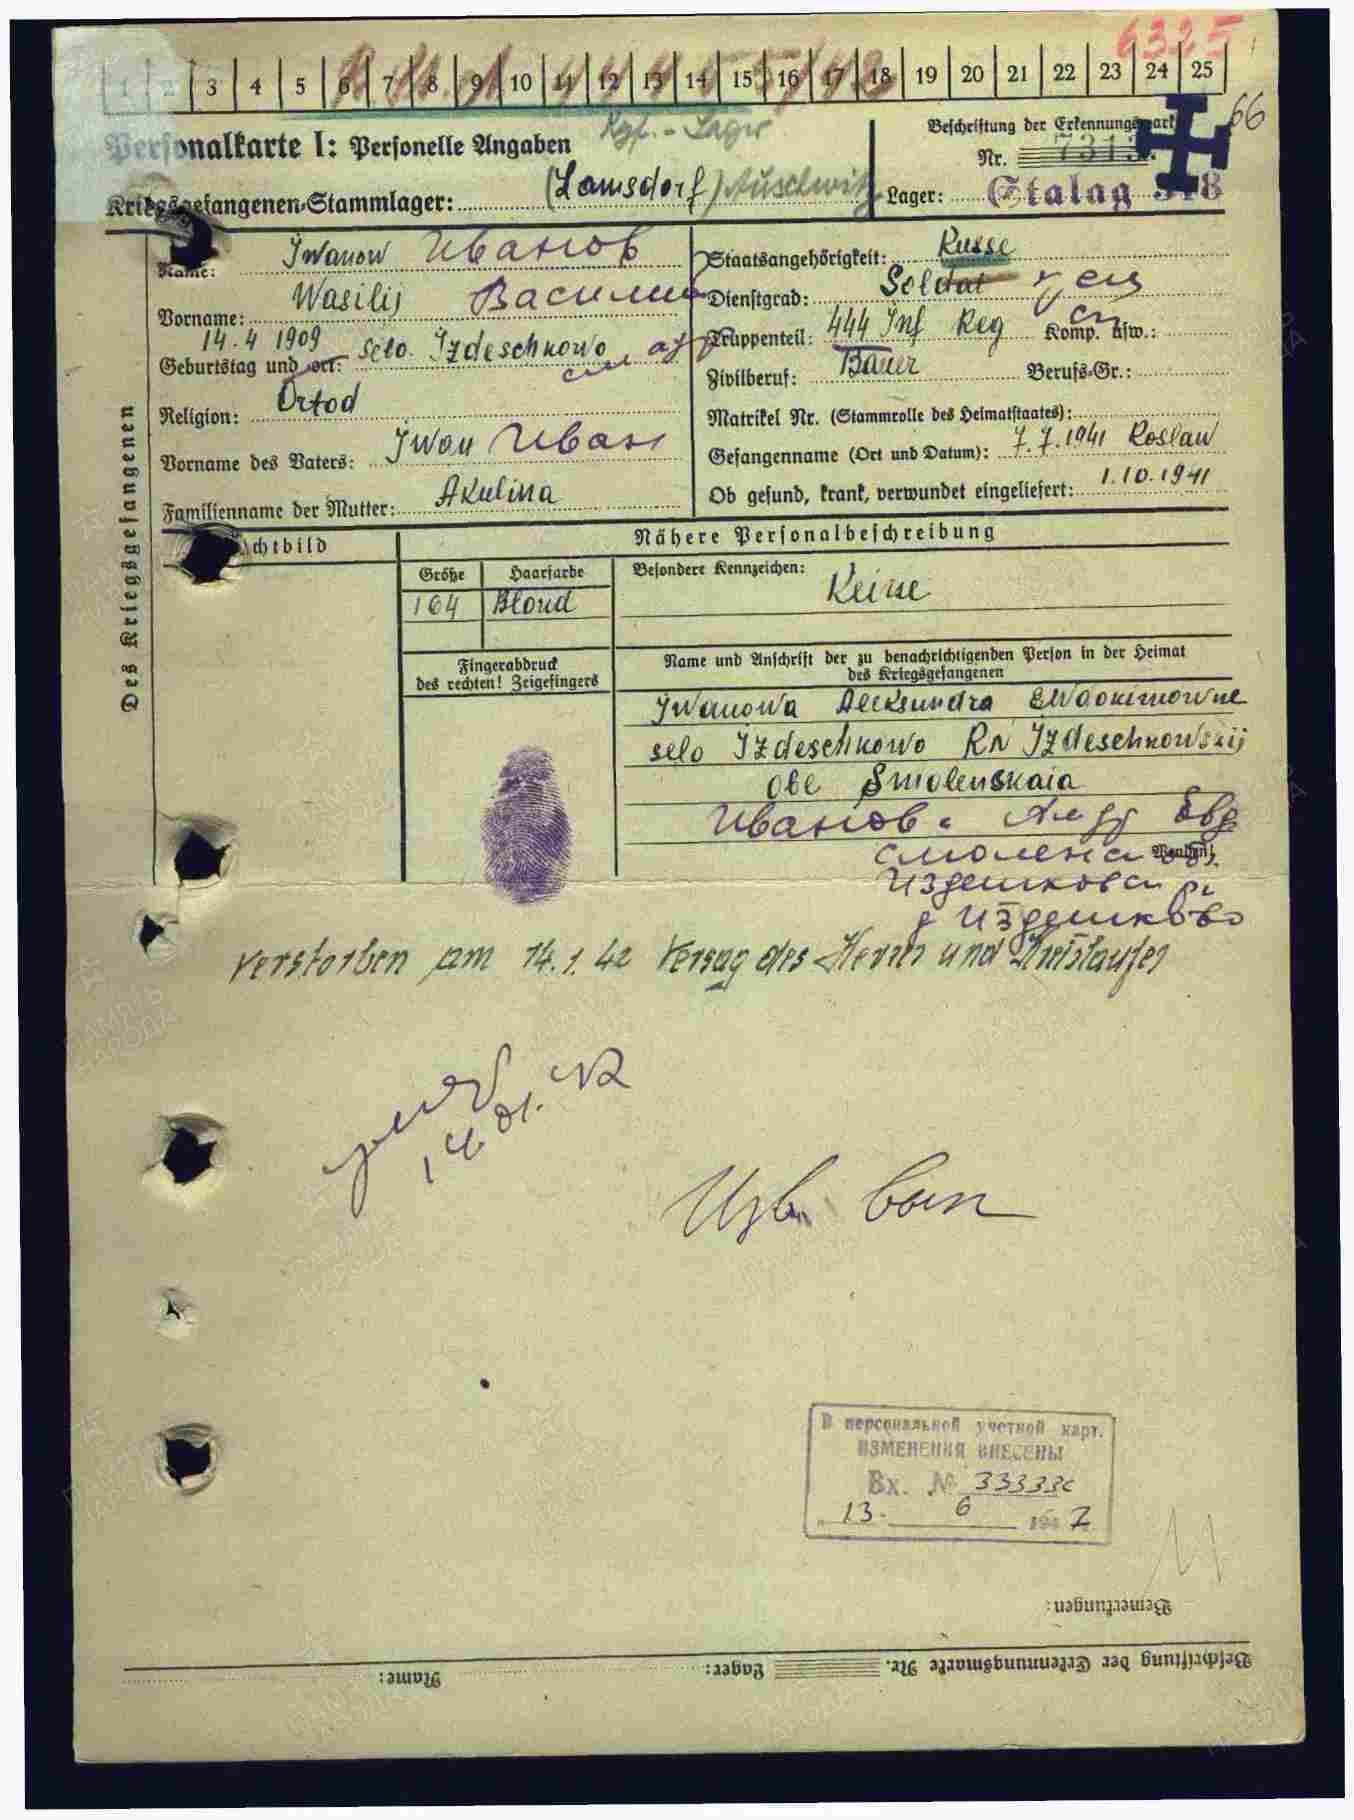 6325
1 2 3 4 5 6 7 8 9 10 11 12 13 14 15 16 17 18 19 20 21 22 23 24 25
66
Personalkarte I: Personelle Angaben
Kgf.-Lager
Beschriftung der Erkennungsmarke
Nr. 7313
Kriegsgefangenen-Stammlager: (Lamsdorf) Auschwitz
Lager: Stalag 318
Des Kriegsgefangenen
Name: Iwanow Иванов
Vorname: Wasilij Василий
Geburtstag und -ort: 14.4 1909 selo. Izdeschkowo
Religion: Ortod
Vorname des Vaters: Iwan Иван
Familienname der Mutter: Akulina
Staatsangehörigkeit: Russe
Dienstgrad: Soldat
Truppenteil: 444 Inf Reg Komp. usw.:
Zivilberuf: Bauer Berufs-Gr.:
Matrikel Nr. (Stammrolle des Heimatstaates):
Gefangennahme (Ort und Datum): 7.7.1941 Roslaw
Ob gesund, krank, verwundet eingeliefert: 1.10.1941
Lichtbild
Nähere Personalbeschreibung
Größe Haarfarbe Besondere Kennzeichen:
164 Blond Keine
Fingerabdruck
des rechten! Zeigefingers
Name und Anschrift der zu benachrichtigenden Person in der Heimat
des Kriegsgefangenen
Iwanowa Aleksandra Ewdokimowne
selo Izdeschkowo Rn Izdeschkowskij
obl Smolenskaia
Иванов. Евд
Wenden!
д Издешково
verstorben am 14.1.42 Versag des Herzen und Kreislaufes
14 01. 42
Изв.
В персональной учетной карт.
ИЗМЕНЕНИЯ ВНЕСЕНЫ
Вх. №
13. 6 1947
Bemerkungen:
Beschriftung der Erkennungsmarke Nr. Lager: Name: